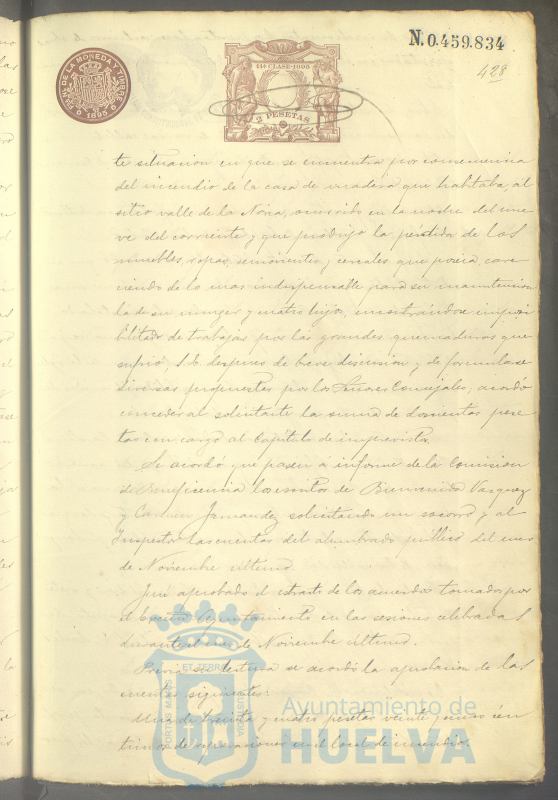 N. 0.459.834
428
FAB. NAL. DE LA MONEDA Y TIMBRE
1895
11ª CLASE-1895
2 PESETAS
te situacion en que se encuentra por consecuencia
del incendio de la casa de madera que habitaba, al
sitio valle de la Noria, ocurrido en la noche del nue-
ve del corriente y que produjo la perdida de los
muebles, ropas, semovientes y cereales que poseia, care-
ciendo de lo mas indispensable para su manutencion
la de su muger y cuatro hijos, encontrandose imposi-
bilitado de trabajar por las grandes quemaduras que
sufrió, S. E. despues de breve discusion y de formularse
diversas propuestas por los Señores Concejales, acordó
conceder al solicitante la suma de doscientas pese-
tas con cargo al Capitulo de imprevistos.
Se acordó que pasen á informe de la Comision
de Beneficencia los escritos de Bienvenida Vazquez
y Carmen Fernandez solicitando un socorro y al
Inspector las cuentas del alumbrado público del mes
de Noviembre último.
Fué aprobado el estracto de los acuerdos tomados por
el Ayuntamiento en las sesiones celebradas
durante el mes de Noviembre último.
Previa su lectura se acordó la aprobacion de las
cuentas siguientes:
Una de treinta y cuatro pesetas veinte y cinco cén-
timos de reparaciones en el local de incendios.
ET TERRAE
PORTUS MARIS
CUSTODIA
Ayuntamiento de
HUELVA